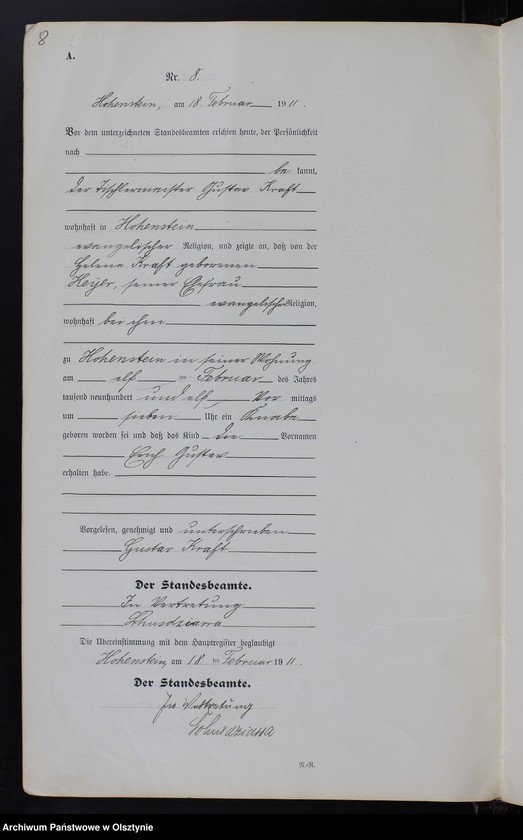 8
A.
Nr. 8.
Hohenstein, am 18. Februar 1911.
Vor dem unterzeichneten Standesbeamten erschien heute, der Persönlichkeit
nach
be kannt,
der Tischlermeister Gustav Kraft
wohnhaft in Hohenstein
evangelischer Religion, und zeigte an, daß von der
Helene Kraft geborenen
Heyer, seiner Ehefrau
evangelischer Religion,
wohnhaft bei ihm
zu Hohenstein in seiner Wohnung
am elf ten Februar des Jahres
tausend neunhundert und elf Vor mittags
um sieben Uhr ein Knabe
geboren worden sei und daß das Kind die Vornamen
Erich Gustav
erhalten habe.
Vorgelesen, genehmigt und unterschrieben
Gustav Kraft
Der Standesbeamte.
In Vertretung
Die Übereinstimmung mit dem Hauptregister beglaubigt
Hohenstein, am 18 ten Februar 1911.
Der Standesbeamte.
In Vertretung
N.-R.
Archiwum Państwowe w Olsztynie